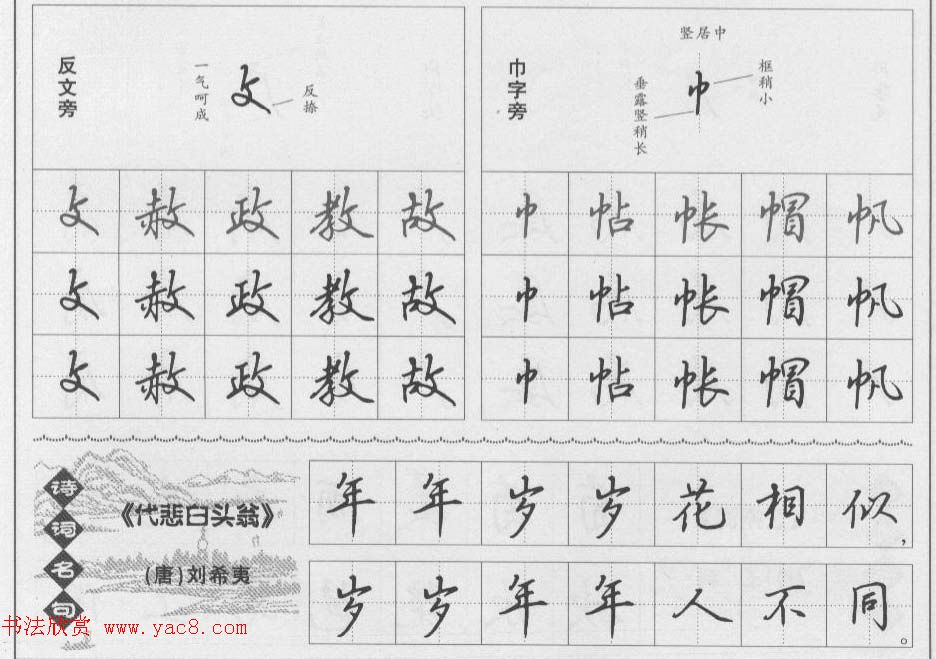 反文旁
一气呵成
攵
反捺
攵赦政教故
攵赦政教故
攵赦政教故
巾字旁
竖居中
巾
框稍小
垂露竖稍长
巾帖帐帽帆
巾帖帐帽帆
巾帖帐帽帆
诗词名句
《代悲白头翁》
(唐)刘希夷
年年岁岁花相似，
岁岁年年人不同。
书法欣赏 www.yac8.com